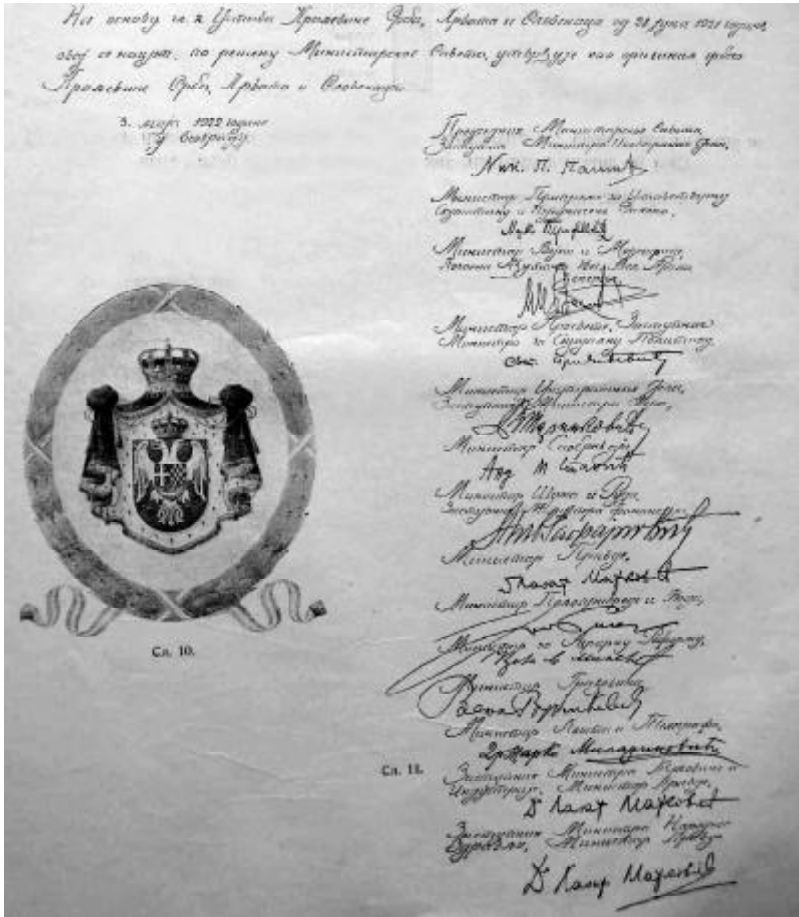 На основу чл. 2 Устава Краљевине Срба, Хрвата и Словенаца од 28 јуна 1921 године,
овај се нацрт, по решењу Министарског Савета, утврђује као државни грб
Краљевине Срба, Хрвата и Словенаца
3. марта 1922 године
у Београду.
Председник Министарског Савета,
Заступник Министра Иностраних Дела,
Ник. П. Пашић
Министар Припреме за Уставотворну
Скупштину и Изједначење Закона,
Министар Војни и Морнарице,
Почасни Ађутант Њег. Вел. Краља
Ђенерал
Министар Просвете, Заступник
Министра за Социјалну Политику,
Министар Унутрашњих Дела,
Заступник Министра Вера,
Министар Саобраћаја
Анд. М. Станић
Министар Шума и Руда,
Заступник Министра финансија
Министар Правде,
Лазар Марковић
Министар Пољопривреде и Вода,
Министар за Аграрну Реформу,
Министар Грађевина
Министар Пошта и Телеграфа,
Др Жарко Миладиновић
Заступник Министра Трговине и
Индустрије, Министар Правде,
Dr Лазар Марковић
Заступник Министра Народног
Здравља, Министар Правде
Dr Лазар Марковић
Сл. 10.
Сл. 11.